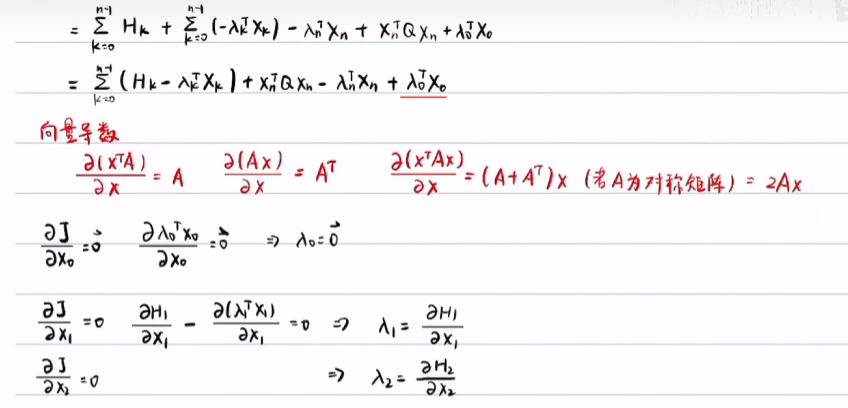 = ∑_{k=0}^{n-1} H_k + ∑_{k=0}^{n-1} (-λ_k^T X_k) - λ_n^T X_n + X_n^T Q X_n + λ_0^T X_0
= ∑_{k=0}^{n-1} (H_k - λ_k^T X_k) + X_n^T Q X_n - λ_n^T X_n + λ_0^T X_0
向量导数
∂(x^T A)/∂x = A  ∂(Ax)/∂x = A^T  ∂(x^T Ax)/∂x = (A+A^T)x (若A为对称矩阵) = 2Ax
∂J/∂x_0 = \vec{0}  ∂λ_0^T x_0/∂x_0 = \vec{0} ⇒ λ_0 = \vec{0}
∂J/∂x_1 = 0  ∂H_1/∂x_1 - ∂(λ_1^T x_1)/∂x_1 = 0 ⇒ λ_1 = ∂H_1/∂x_1
∂J/∂x_2 = 0  ⇒ λ_2 = ∂H_2/∂x_2